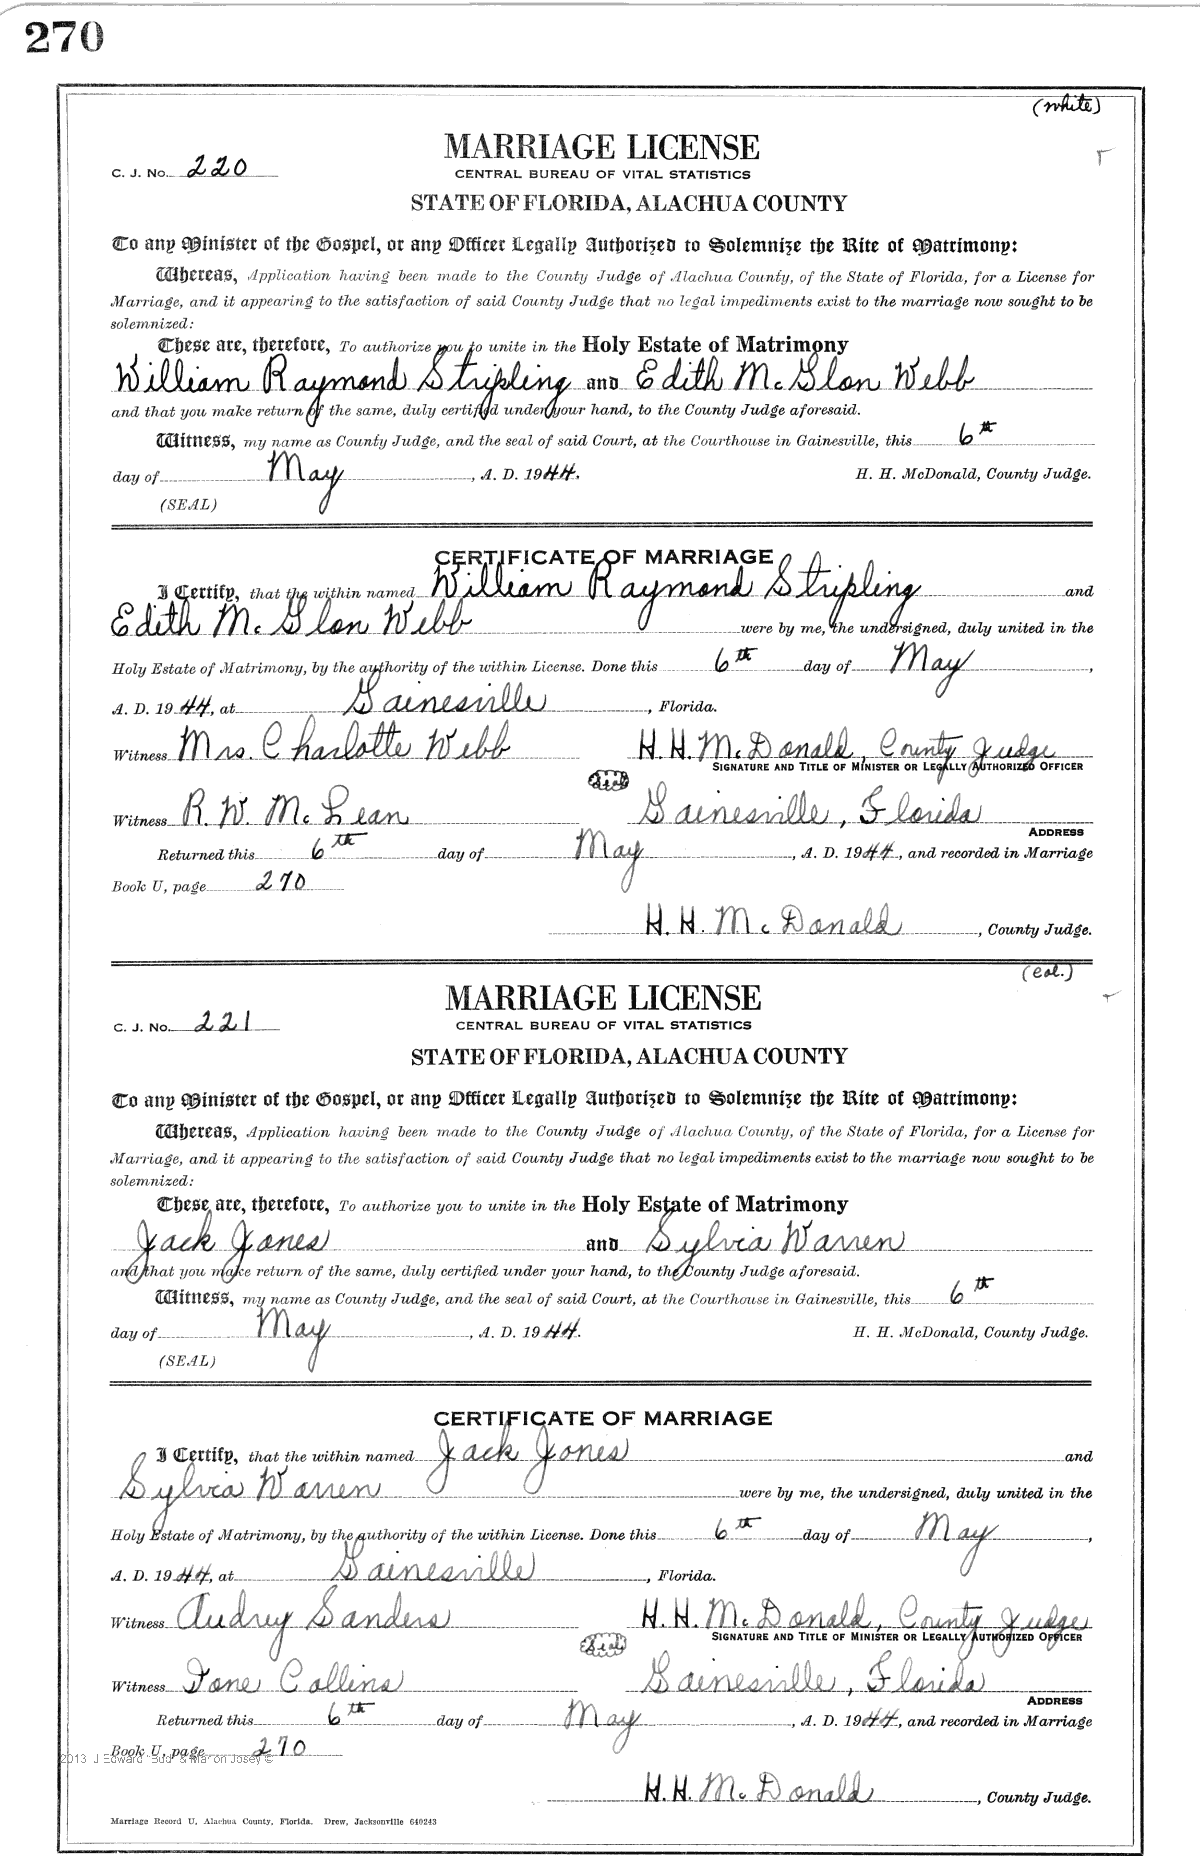 270
(white)
MARRIAGE LICENSE
C. J. No. 220
CENTRAL BUREAU OF VITAL STATISTICS
STATE OF FLORIDA, ALACHUA COUNTY
To any Minister of the Gospel, or any Officer Legally Authorized to Solemnize the Rite of Matrimony:
Whereas, Application having been made to the County Judge of Alachua County, of the State of Florida, for a License for
Marriage, and it appearing to the satisfaction of said County Judge that no legal impediments exist to the marriage now sought to be
solemnized:
These are, therefore, To authorize you to unite in the Holy Estate of Matrimony
William Raymond Stripling and Edith McGlon Webb
and that you make return of the same, duly certified under your hand, to the County Judge aforesaid.
Witness, my name as County Judge, and the seal of said Court, at the Courthouse in Gainesville, this 6th
day of May, A. D. 1944. H. H. McDonald, County Judge.
(SEAL)
CERTIFICATE OF MARRIAGE
I Certify, that the within named William Raymond Stripling and
Edith McGlon Webb were by me, the undersigned, duly united in the
Holy Estate of Matrimony, by the authority of the within License. Done this 6th day of May,
A. D. 1944, at Gainesville, Florida.
Witness Mrs. Charlotte Webb H. H. McDonald, County Judge
SIGNATURE AND TITLE OF MINISTER OR LEGALLY AUTHORIZED OFFICER
Seal
Witness R. W. McLean Gainesville, Florida
ADDRESS
Returned this 6th day of May, A. D. 1944, and recorded in Marriage
Book U, page 270
H. H. McDonald, County Judge.
(col.)
MARRIAGE LICENSE
C. J. No. 221
CENTRAL BUREAU OF VITAL STATISTICS
STATE OF FLORIDA, ALACHUA COUNTY
To any Minister of the Gospel, or any Officer Legally Authorized to Solemnize the Rite of Matrimony:
Whereas, Application having been made to the County Judge of Alachua County, of the State of Florida, for a License for
Marriage, and it appearing to the satisfaction of said County Judge that no legal impediments exist to the marriage now sought to be
solemnized:
These are, therefore, To authorize you to unite in the Holy Estate of Matrimony
Jack Jones and Sylvia Warren
and that you make return of the same, duly certified under your hand, to the County Judge aforesaid.
Witness, my name as County Judge, and the seal of said Court, at the Courthouse in Gainesville, this 6th
day of May, A. D. 1944. H. H. McDonald, County Judge.
(SEAL)
CERTIFICATE OF MARRIAGE
I Certify, that the within named Jack Jones and
Sylvia Warren were by me, the undersigned, duly united in the
Holy Estate of Matrimony, by the authority of the within License. Done this 6th day of May,
A. D. 1944, at Gainesville, Florida.
Witness Audrey Sanders H. H. McDonald, County Judge
SIGNATURE AND TITLE OF MINISTER OR LEGALLY AUTHORIZED OFFICER
Seal
Witness Ione Collins Gainesville, Florida
ADDRESS
Returned this 6th day of May, A. D. 1944, and recorded in Marriage
Book U, page 270
2013 J Edward "Bud" & Marion Josey ©
H. H. McDonald, County Judge.
Marriage Record U, Alachua County, Florida. Drew, Jacksonville 640243